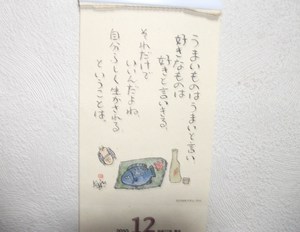 うまいものはうまいと言い
好きなものは
好きと言いきる。
それだけで
いいんだよね、
自分らしく生かされる
ということは。
12